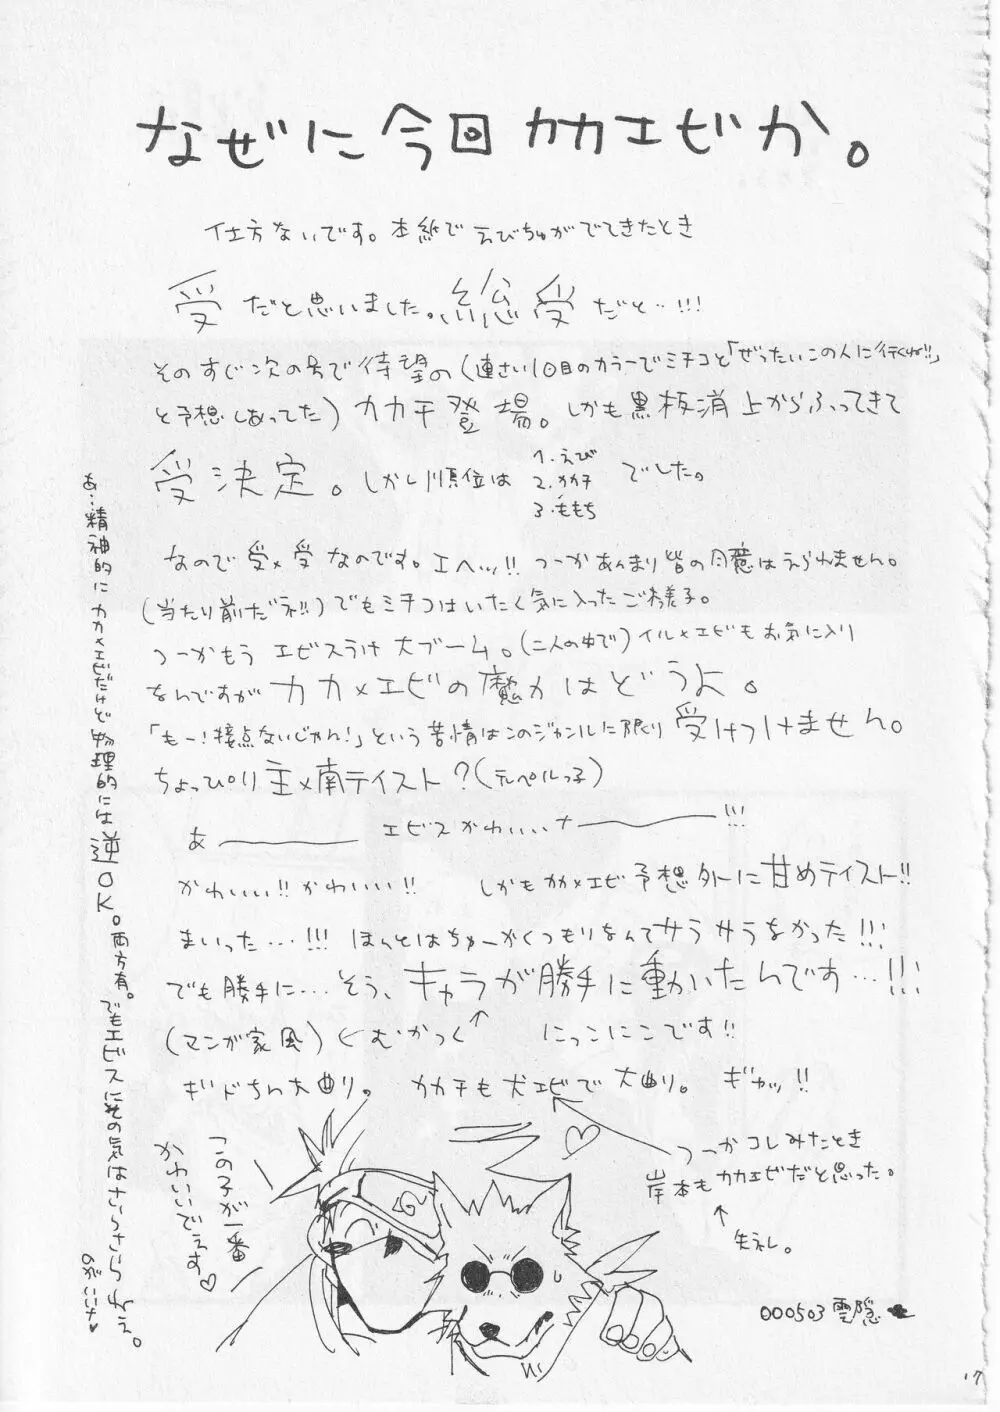 なぜに今回カカエビか。
仕方ないです。本紙でえびちゅがでてきたとき
受だと思いました。総受だと…!!!
そのすぐ次の号で待望の(連さい1回目のカラーでミチコと「ぜったいこの人に行くね!!」
と予想しあってた)カカチ登場。しかも黒板消上からふってきて
受決定。しかし順位は
1.えび
2.カカチ
3.ももち
でした。
なので受×受なのです。エヘッ!!つーかあんまり皆の同意はえられません。
(当たり前だヨ!!)でもミチコはいたく気に入ったご様子。
つーかもうエビスうけ大ブーム。(二人の中で)イル×エビもお気に入り
なんですがカカ×エビの魔力はどうよ。
「もー!接点ないじゃん!」という苦情はこのジャンルに限り受けつけません。
ちょっぴり主×南テイスト?(デルペルっ子)
あ――――エビスかわいいナ――――!!!
かわいい!!かわいい!! しかもカカ×エビ予想外に甘めテイスト!!
まいった…!!!ほんとはちゅーがくつもりなんてサラサラなかった!!!
でも勝手に…そう、キャラが勝手に動いたんです…!!!
(マンガ家風)←むかつく↑ にっこにこです!!
ギドちん大曲り。 カカチも犬エビで大曲り。 ギャッ!!
つーかコレみたとき
岸本もカカエビだと思った。
↑
失礼。
この子が一番
かわいいでぇす♡
000503 雲隠
あ…精神的にカカ×エビだけど物理的には逆OK。両方有。でもエビスにその気はさらさらねぇ。
のがいいナ♥
17